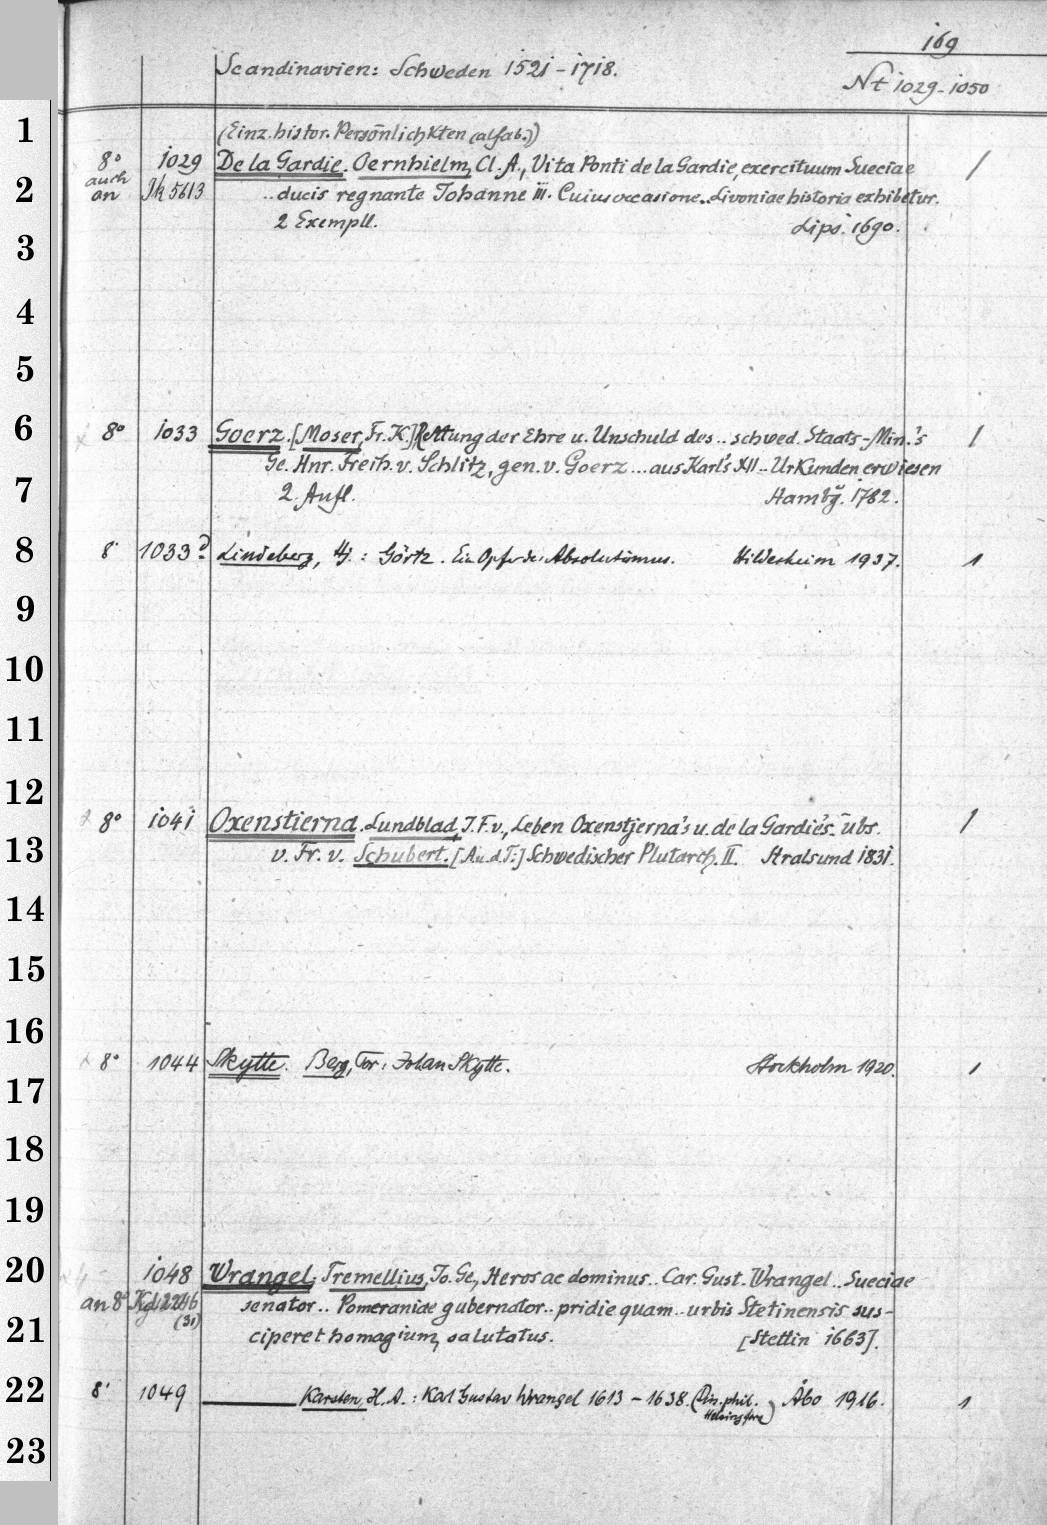 169
Scandinavien: Schweden 1521-1718.
Nt 1029-1050
1
(Einz. histor. Persönlichkten (alfab.))
8° 1029 De la Gardie. Oernhielm, Cl. A., Vita Ponti de la Gardie, exercituum Sueciae /
2 auch an Jk 5613 .. ducis regnante Johanne III. Cuius occasione .. Livoniae historia exhibetur.
2 Exempll. Lips. 1690.
3
4
5
6 8° 1033 Goerz. [Moser, Fr. K.] Rettung der Ehre u. Unschuld des .. schwed. Staats-Min.'s /
Ge. Hnr. Freih. v. Schlitz, gen. v. Goerz ... aus Karl's XII .. Urkunden erwiesen
7 2. Aufl. Hambg. 1782.
8 8° 1033ª Lindeberg, Hj.: Görtz. Ein Opfer des Absolutismus. Hildesheim 1937. 1
9
10
11
12
8° 1041 Oxenstierna. Lundblad, J. F. v., Leben Oxenstjerna's u. de la Gardie's. Übs. /
13 v. Fr. v. Schubert. [Au. d. T:] Schwedischer Plutarch. II. Stralsund 1831.
14
15
16
8° 1044 Skytte. Berg, Tor: Johan Skytte. Stockholm 1920. 1
17
18
19
20 1048 Wrangel. Tremellius, Jo. Ge., Heros ac dominus .. Car. Gust. Wrangel .. Sueciae
an 8° (31) senator .. Pomeraniae gubernator .. pridie quam .. urbis Stetinensis sus-
21 ciperet homagium, salutatus. [Stettin 1663].
22 8° 1049 ——— Karsten, H. A.: Karl Gustav Wrangel 1613-1638. (Diss. phil. Helsingfors) Åbo 1916. 1
23